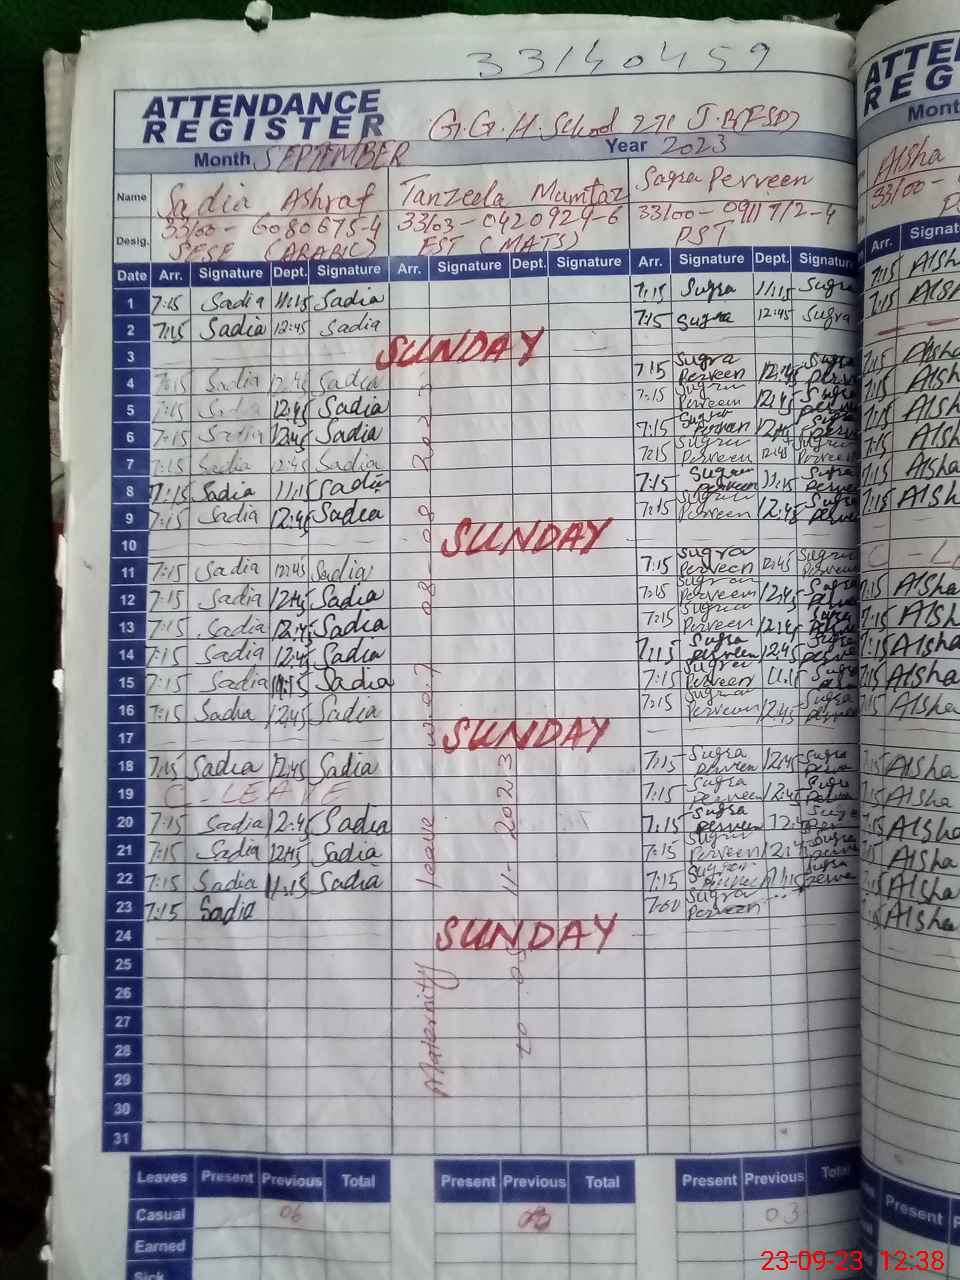 33140459
ATTENDANCE
REGISTER
G.G.H.School 271 J.B(FSD)
Month SEPTEMBER Year 2023
Name Sadia Ashraf Tanzeela Mumtaz Sagra Perveen
33100-6080675-4 33103-0420924-6 33100-0911712-4
Desig. SESE (ARABIC) EST (MATS) PST
Date Arr. Signature Dept. Signature Arr. Signature Dept. Signature Arr. Signature Dept. Signature
1 7:15 Sadia 11:15 Sadia 7:15 Sugra 11:15 Sugra
2 7:15 Sadia 12:45 Sadia 7:15 Sugra 12:45 Sugra
3 SUNDAY
4 7:15 Sadia 12:45 Sadia 7:15 Sugra Perveen 12:45 Sugra
5 7:15 Sadia 12:45 Sadia 7:15 Sugra Perveen 12:45 Sugra
6 7:15 Sadia 12:45 Sadia 7:15 Sugra Perveen 12:45 Sugra
7 7:15 Sadia 12:45 Sadia 7:15 Sugra Perveen 12:45 Sugra
8 7:15 Sadia 11:15 Sadia 7:15 Sugra Perveen 11:15 Sugra
9 7:15 Sadia 12:45 Sadia 7:15 Sugra Perveen 12:45 Sugra
10 SUNDAY
11 7:15 Sadia 12:45 Sadia 7:15 Sugra Perveen 12:45 Sugra
12 7:15 Sadia 12:45 Sadia 7:15 Sugra Perveen 12:45 Sugra
13 7:15 Sadia 12:45 Sadia 7:15 Sugra Perveen 12:45 Sugra
14 7:15 Sadia 12:45 Sadia 7:15 Sugra Perveen 12:45 Sugra
15 7:15 Sadia 11:15 Sadia 7:15 Sugra Perveen 11:15 Sugra
16 7:15 Sadia 12:45 Sadia 7:15 Sugra Perveen 12:45 Sugra
17 SUNDAY
18 7:15 Sadia 12:45 Sadia 7:15 Sugra Perveen 12:45 Sugra
19 C-LEAVE 7:15 Sugra Perveen 12:45 Sugra
20 7:15 Sadia 12:45 Sadia 7:15 Sugra Perveen
21 7:15 Sadia 12:45 Sadia 7:15 Sugra Perveen Sugra
22 7:15 Sadia 11:15 Sadia 7:15 Sugra Perveen 11:15 Sugra
23 7:15 Sadia 7:00 Sugra Perveen
24 SUNDAY
25
26
27
28
29
30
31
Maternity leave w.e.f 08-08-2023
to 05-11-2023
Leaves Present Previous Total Present Previous Total Present Previous Total
Casual 06 03
Earned
Sick
ATTE
REG
Month
Aisha
33100-
Arr. Signat
7:15 Aisha
Present
23-09-23 12:38